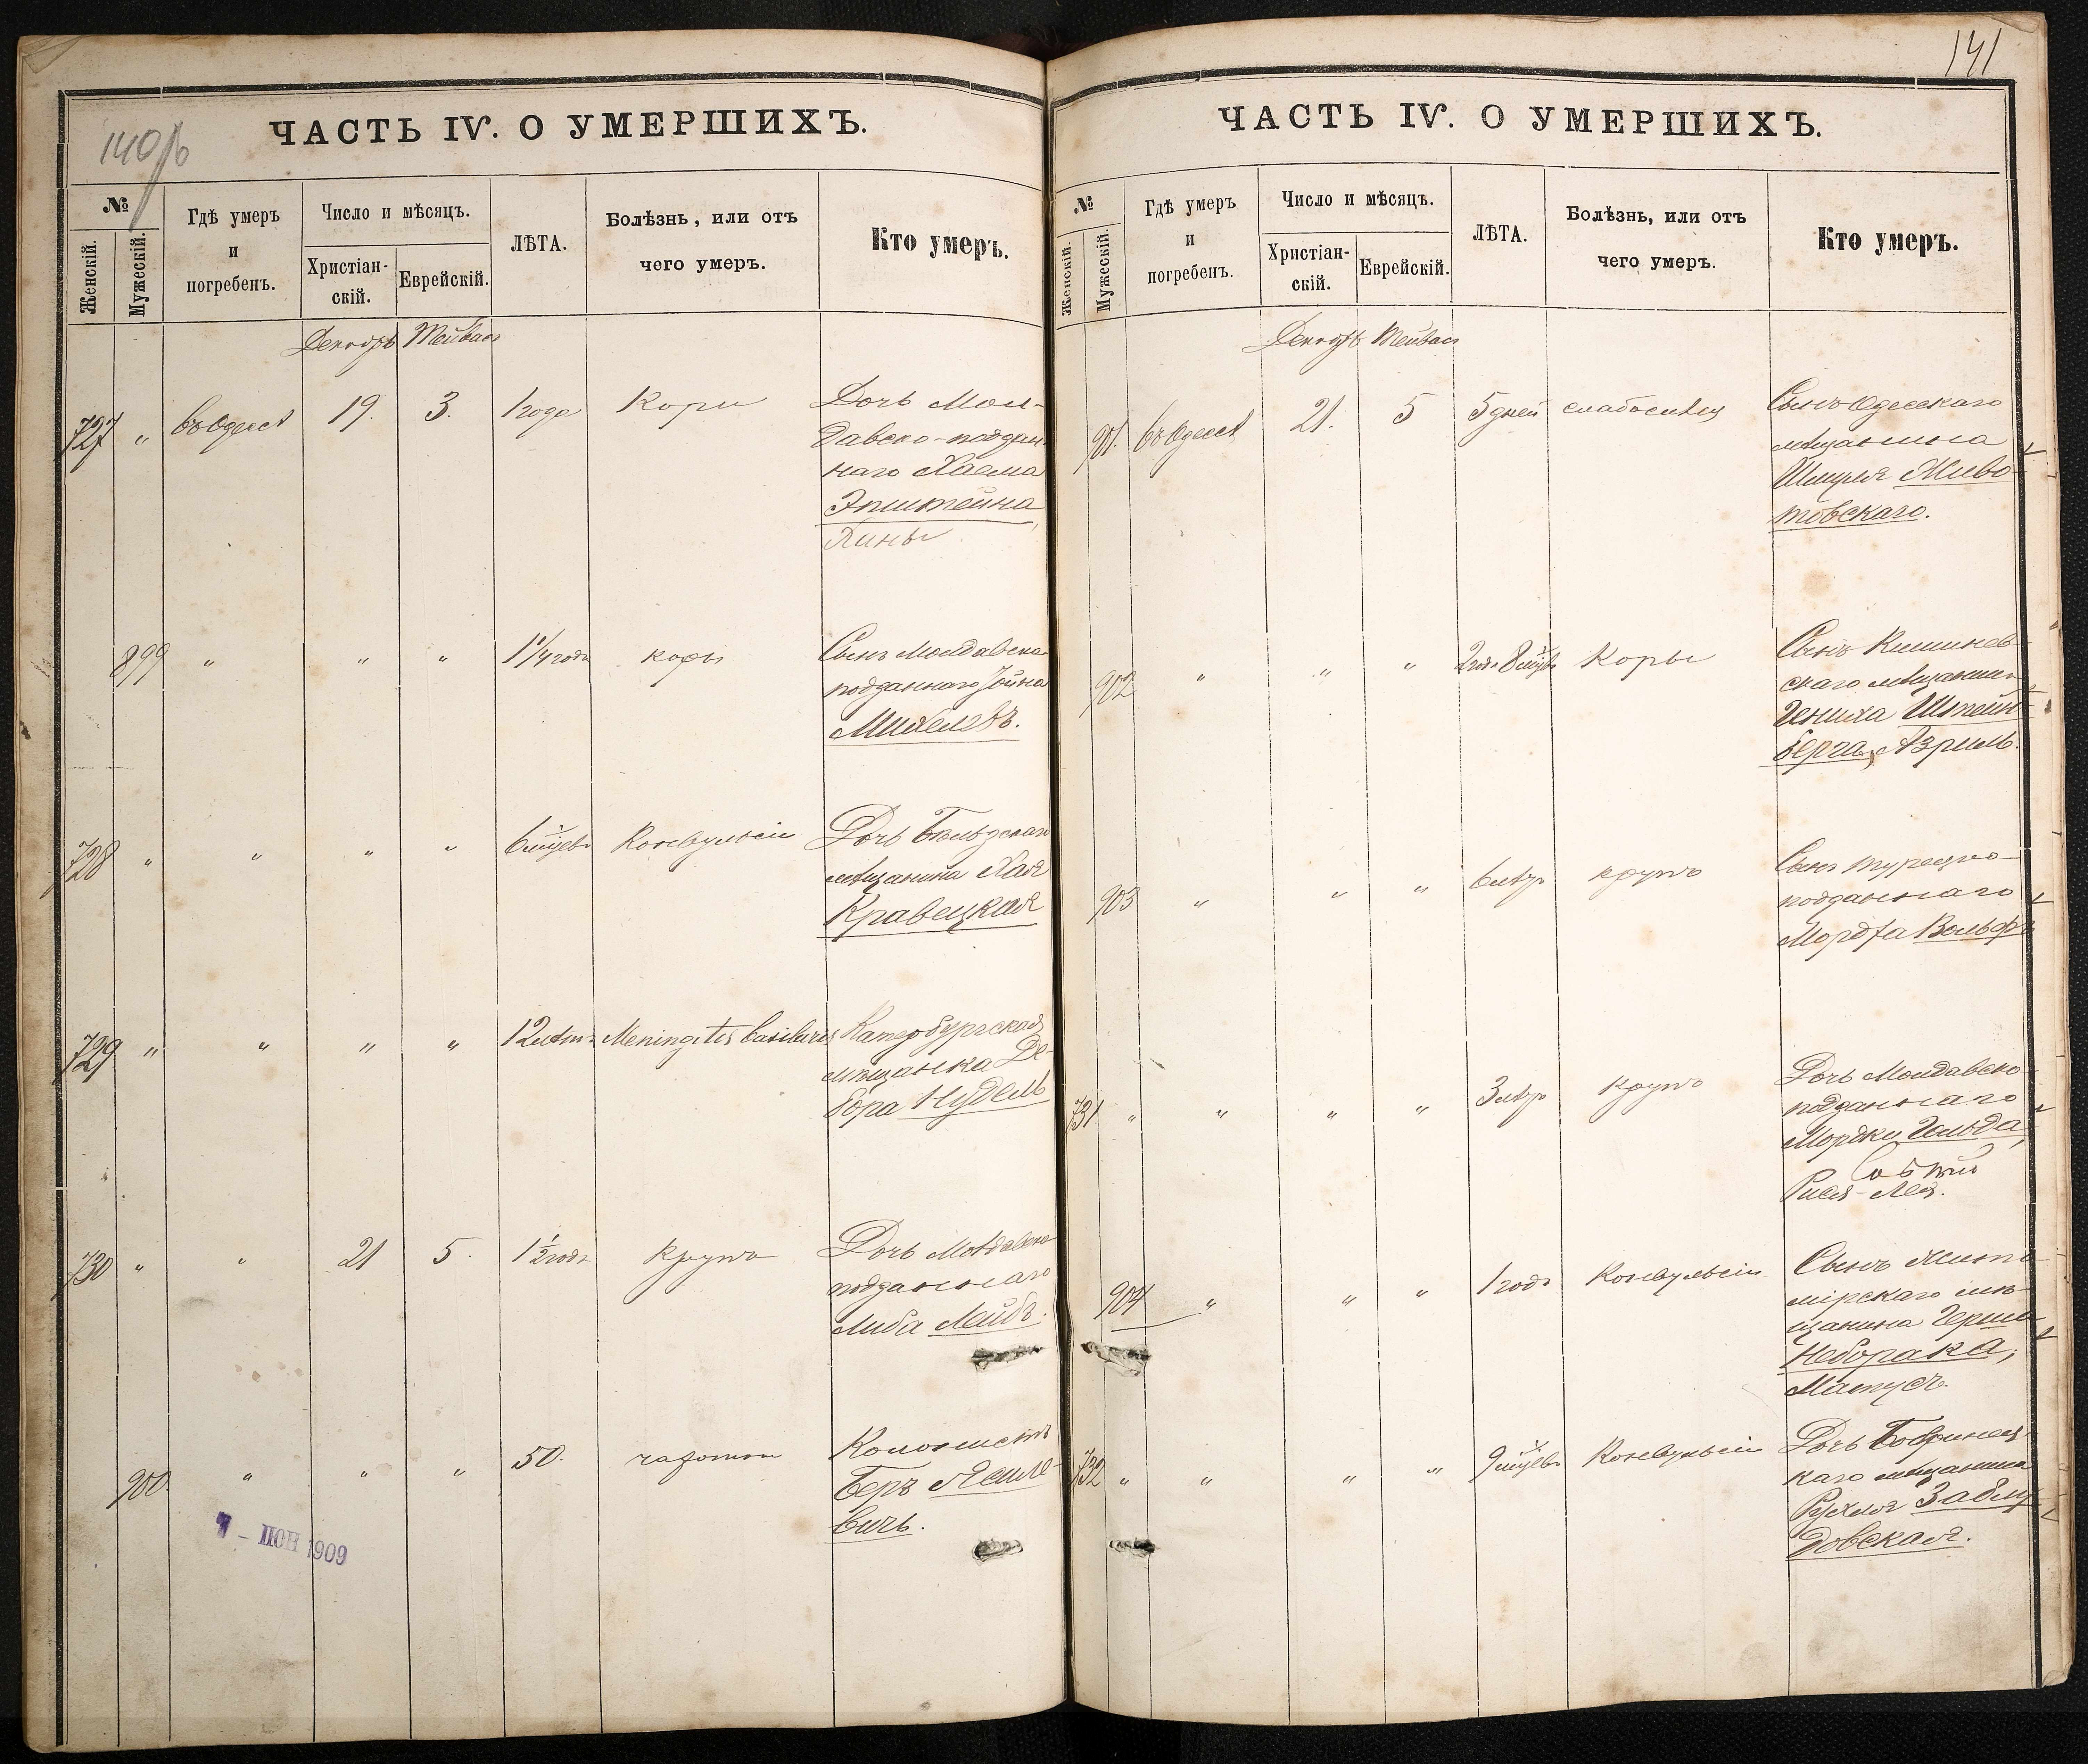 140об
ЧАСТЬ IV. О УМЕРШИХЪ.
№
Женскій.
Мужескій.
Гдѣ умеръ
и
погребенъ.
Число и мѣсяцъ.
Христіан-
скій.
Еврейскій.
ЛѢТА.
Болѣзнь, или отъ
чего умеръ.
Кто умеръ.
Декабрь Тейвасъ
727 " въ Одессѣ 19. 3. 1 года Кори Дочь Мол-
давско-поддан
наго Хаема
Эпштейна
899 " " " 1 1/4 года корь Сынъ Молдавско
подданнаго Іойна
728 " " " " 6 мцевъ Конвульсіи Дочь Бельцскаго
мѣщанина Хая
Кравецкая
729 " " " " 12 лѣтъ Meningitis basilaris
мѣщанка Де-
бора Нудель
730 " " 21 5. 1 1/2 года Крупъ Дочь Молдавско
подданнаго
Либа Лейбъ.
900 " " " 50. чахотки Колонистъ
Беръ
вичъ.
ІЮН 1909
141
ЧАСТЬ IV. О УМЕРШИХЪ.
№
Женскій.
Мужескій.
Гдѣ умеръ
и
погребенъ.
Число и мѣсяцъ.
Христіан-
скій.
Еврейскій.
ЛѢТА.
Болѣзнь, или отъ
чего умеръ.
Кто умеръ.
Декабрь Тейвасъ
901. въ Одессѣ 21. 5 5 дней слабосилія Сынъ Одесскаго
мѣщанина
Шмуля Живо-
товскаго.
902 " " " 2 года 8 мцвъ Корь Сынъ Кишинев-
скаго мѣщанина
Гениха Штейн-
берга, Азриль.
903 " " " 6 лѣтъ крупъ Сынъ турецко-
подданнаго
Мордха Вольфъ
731 " " " " 3 лѣтъ Крупъ Дочь Молдавско
подданнаго
Мордки Гольда,
Рися-Лея.
904 " " " 1 года Конвульсіи Сынъ Жито-
мірскаго мѣ-
щанина Герша
Неборака,
Матусъ.
732 " " " " 9 мцевъ Конвульсіи Дочь Бобринец-
каго мѣщанина
Рухля Заблу-
довская.